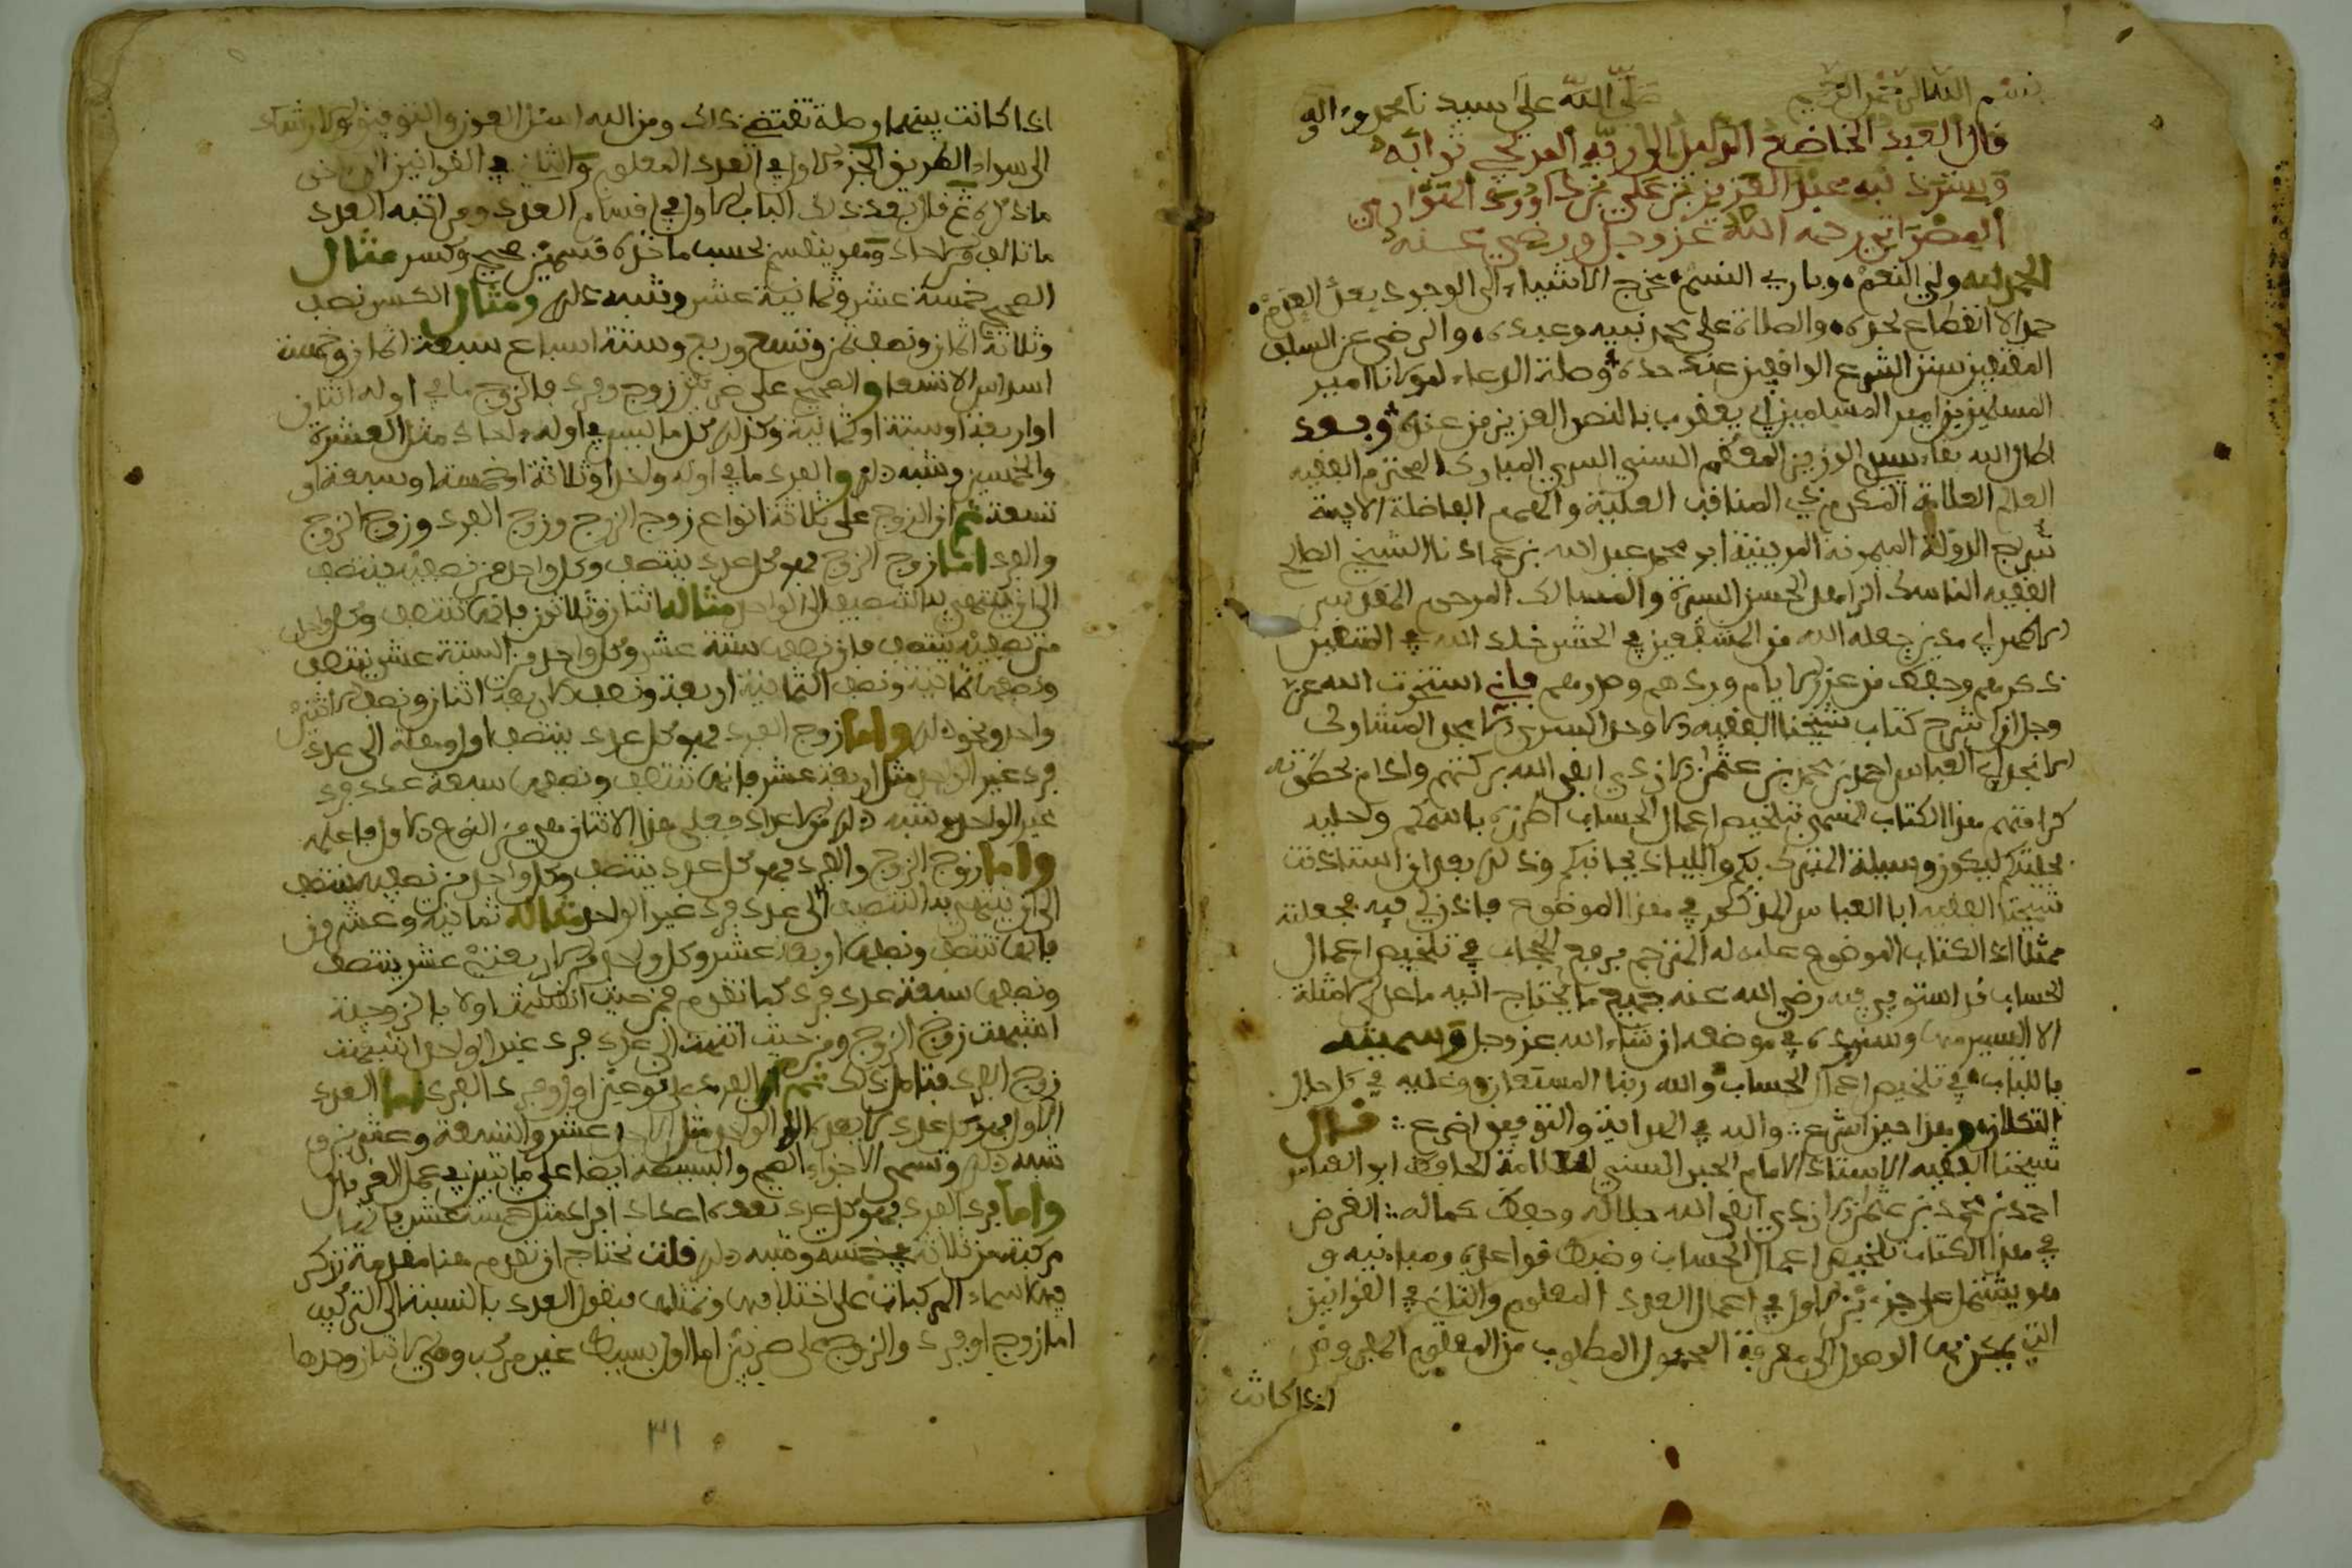 بسم الله الرحمن الرحيم صلى الله على سيدنا محمد وءاله
قال العبد الخاضع الذليل الى ربه المرتجي ثوابه
عبد العزيز بن علي بن داوود الهواري
المصراتي رحمه الله عز وجل ورضي عنه
الحمد لله ولي النعم وباري النسم مخرج الاشياء الى الوجود بعد العدم
حمدا لا انقطاع لحده والصلاة على محمد نبيه وعبده والرضى عن السلف
المقتفين سنن الشرع الواقفين عند حده وصلة الدعاء لمولانا امير
المسلمين بن امير المسلمين ابي يعقوب بالنصر العزيز من عنده وبعد
اطال الله بقاء الوزير المعظم السني السري المبارك المحترم الفقيه
العالم العلامة المكرم ذي المناقب العلية والهمم الفاضلة
الدولة الميمونة المرينية ابو محمد عبد الله بن عمادنا الشيخ الصالح
الفقيه الناسك الحسن السيرة والمسالك المرحوم المقدس
ابي مدين جعله الله من المشفعين في الحشر خلد الله في
ذكرهم وحفظ من عزر الايام وردهم وصدرهم فاني استخرت الله عز
وجل ان اشرح كتاب شيخنا الفقيه الاوحد السري الامجد
ابي العباس احمد بن محمد بن عثمان الازدي ابقى الله بركتهم وادام
هذا الكتاب المسمى بتلخيص اعمال الحساب اطرزه باسمكم
ليكون وسيلة بكم واللياذ بجانبكم وذلك بعد ان استاذنت
شيخنا الفقيه ابا العباس المذكور في هذا الموضوع فاذن لي فيه فجعلته
ممثلا اذ الكتاب الموضوع عليه له المترجم برفع الحجاب في تلخيص اعمال
الحساب قد استوفى فيه رضي الله عنه جميع ما يحتاج اليه ما عدا الامثلة
الا اليسير منها وسنورده في موضعه ان شاء الله عز وجل وسميته
باللباب في تلخيص اعمال الحساب والله ربنا المستعان وعليه في كل حال
التكلان وهذا حين اشرع والله في الهداية والتوفيق اضرع قال
شيخنا الفقيه الاستاذ الامام الحبر السني العلامة الحافظ ابو العباس
احمد بن محمد بن عثمان الازدي ابقى الله جلاله وحفظ كماله الغرض
في هذا الكتاب تلخيص اعمال الحساب وضبط قواعده ومبانيه و
هو يشتمل على جزءين الاول في اعمال العدد المعلوم والثاني في القوانين
التي يمكن بها الوصول الى معرفة المجهول المطلوب من المعلوم المفروض
اذا كانت
اذا كانت بينهما وصلة تقتضي ذلك ومن الله اسئل العون والتوفيق والارشاد
الى سواء الطريق الجزء الاول في العدد المعلوم والثاني في القوانين الى اخر
ما ذكره ثم قال بعد ذلك الباب الاول في اقسام العدد ومراتبه العدد
ما تالف من احاد وهو ينقسم بحسب ما ذكره قسمين صحيح وكسر مثال
الصحيح خمسة عشر وثمانية عشر وشبه ذلك ومثال الكسر نصف
وثلاثة اثمان ونصف ثمن وتسع وربع وستة اسباع سبعة اثمان وخمسة
اسداس الاتسعا والصحيح على ضربين زوج وفرد فالزوج ما في اوله اثنان
او اربعة او ستة او ثمانية وكذلك كل ما ليس في اوله احاد مثل العشرة
والخمسين وشبه ذلك والفرد ما في اوله واحد او ثلاثة او خمسة او سبعة او
تسعة ثم ان الزوج على ثلاثة انواع زوج الزوج وزوج الفرد وزوج الزوج
والفرد اما زوج الزوج فهو كل عدد ينتصف وكل واحد من نصفيه ينتصف
الى ان ينتهي به التنصيف الى الواحد مثاله اثنان وثلاثون فانها تنتصف وكل واحد
من نصفيه ينتصف فان نصفها ستة عشر وكل واحد من الستة عشر ينتصف
ونصفها ثمانية ونصف الثمانية اربعة ونصف الاربعة اثنان ونصف الاثنين
واحد ونحو ذلك واما زوج الفرد فهو كل عدد ينتصف اول وهلة الى عدد
فرد غير الواحد مثل اربعة عشر فانها تنتصف ونصفها سبعة عدد فرد
غير الواحد وشبه ذلك من الاعداد فعلى هذا الاثنان هي من النوع الاول فاعلمه
واما زوج الزوج والفرد فهو كل عدد ينتصف وكل واحد من نصفيه ينتصف
الى ان ينتهي به التنصيف الى عدد فرد غير الواحد مثاله ثمانية وعشرون
فانها تنتصف ونصفها اربعة عشر وكل واحد من الاربعة عشر ينتصف
ونصفها سبعة عدد فرد كما تقدم فمن حيث انقسمت اولا بالزوجية
اشبهت زوج الزوج ومن حيث انتهت الى عدد فرد غير الواحد اشبهت
زوج الفرد فتامل ذلك ثم ان الفرد على نوعين اول وفرد الفرد اما الفرد
الاول فهو كل عدد لا يعده الا الواحد مثل الاحد عشر والتسعة وعشرين و
شبه ذلك وتسمى الاجزاء الصم والبسيطة ايضا على ما تبين في عمل الغربال
واما فرد الفرد فهو كل عدد تعده اعداد افراد مثل خمسة عشر فانها
مركبة من ثلاثة في خمسة وشبه ذلك قلت نحتاج ان نقدم هنا مقدمة نذكر
فيها اسماء المركبات على اختلافها ونمثلها فنقول العدد بالنسبة الى التركيب
اما زوج او فرد والزوج على ضربين اما اول بسيط غير مركب وهي الاثنان وحدها
٣١